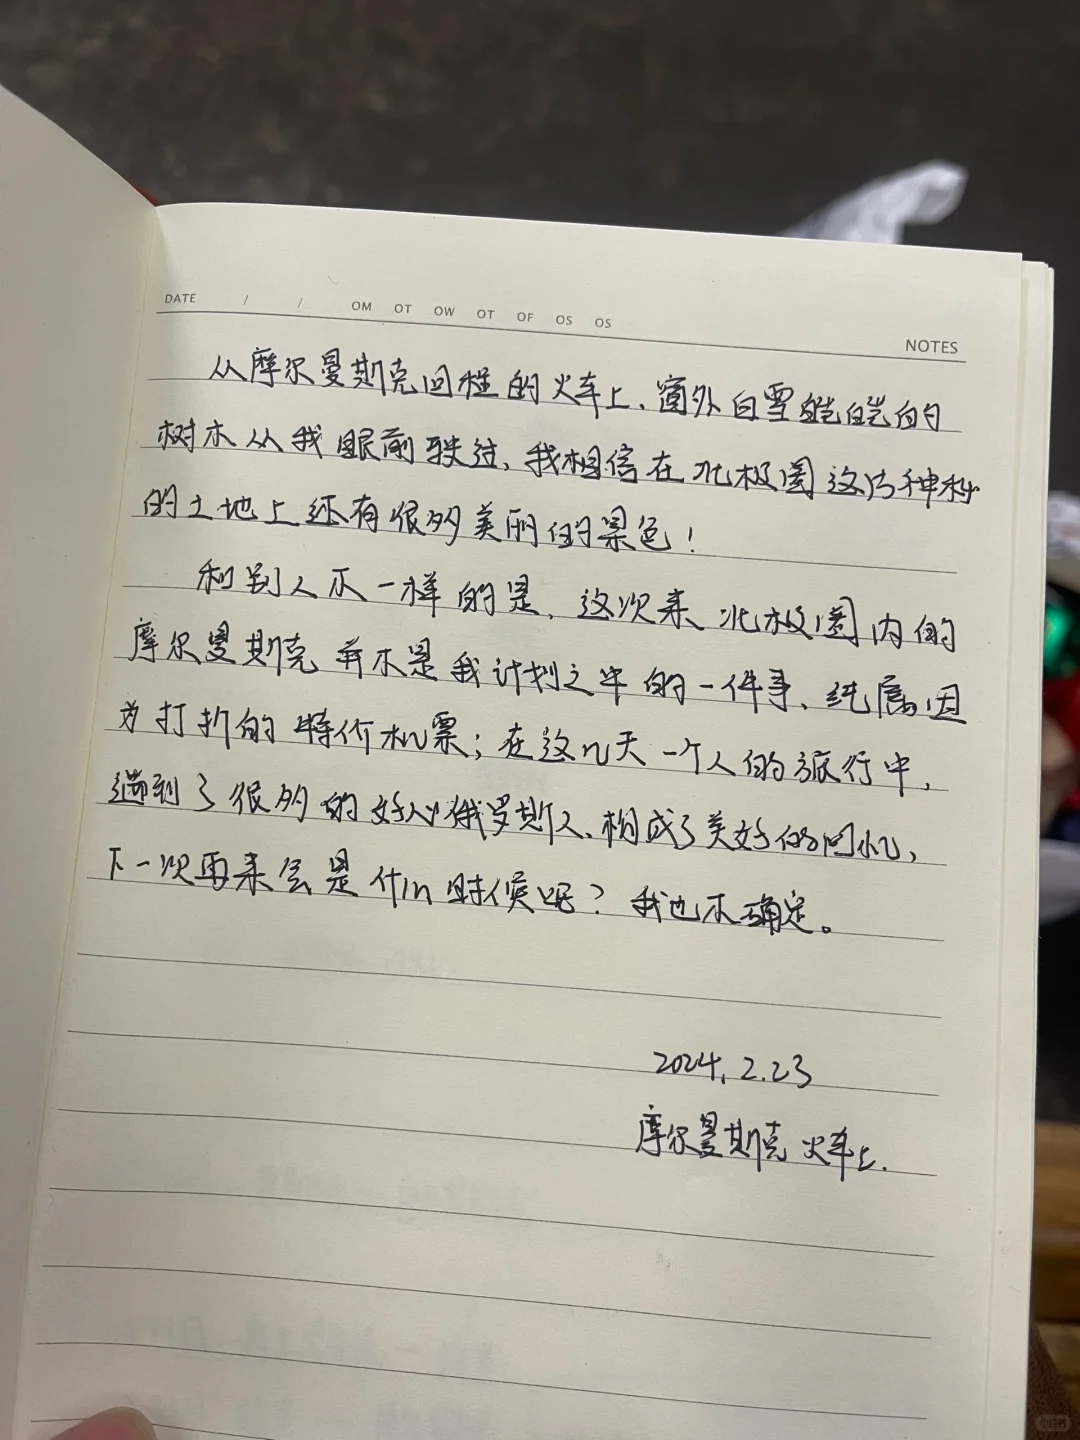 DATE / / OM OT OW OT OF OS OS
NOTES
从摩尔曼斯克回程的火车上、窗外白雪皑皑的
树木从我眼前驶过,我相信在北极圈这片神秘
的土地上还有很多美丽的景色!
和别人不一样的是,这次来北极圈内的
摩尔曼斯克并不是我计划之中的一件事、纯属因
为打折的特价机票;在这几天一个人的旅行中,
遇到了很多的好心俄罗斯人、构成了美好的回忆,
下一次再来会是什么时候呢?我也不确定。
2024.2.23
摩尔曼斯克火车上.
小红书